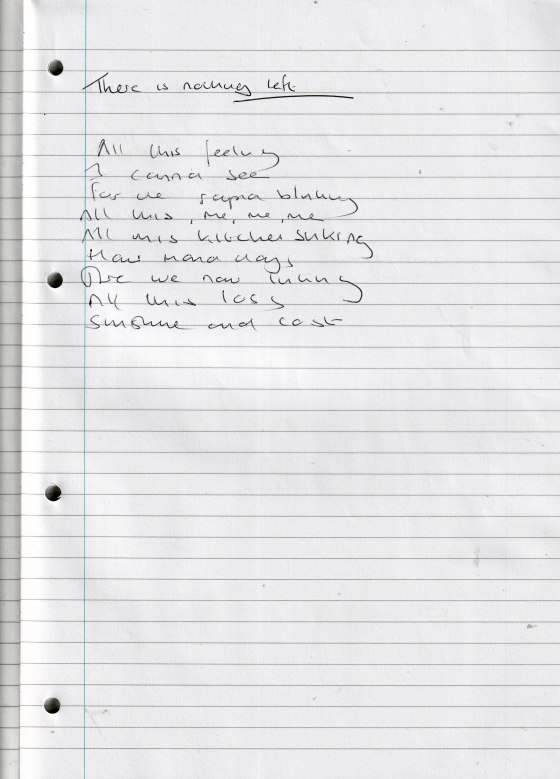 There is nothing left
All this feeling
I canna see
For the blinking
All this, me, me, me
All this kitchen sinking
How many days,
Are we now
All this loss
Sunshine and cost